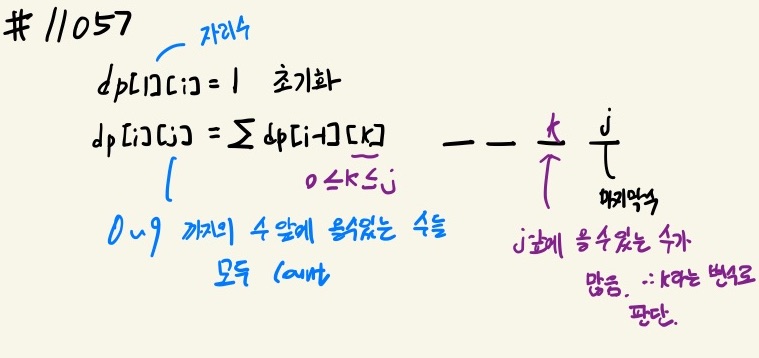 # 11057
자리수
dp[1][i] = 1 초기화
dp[i][j] = ∑ dp[i-1][k]
0 ≤ k ≤ j
0~9 까지의 수 앞에 올수있는 수들
모두 count
k j
마지막수
j앞에 올 수 있는 수가
많음. ∴ k라는 변수로
판단.